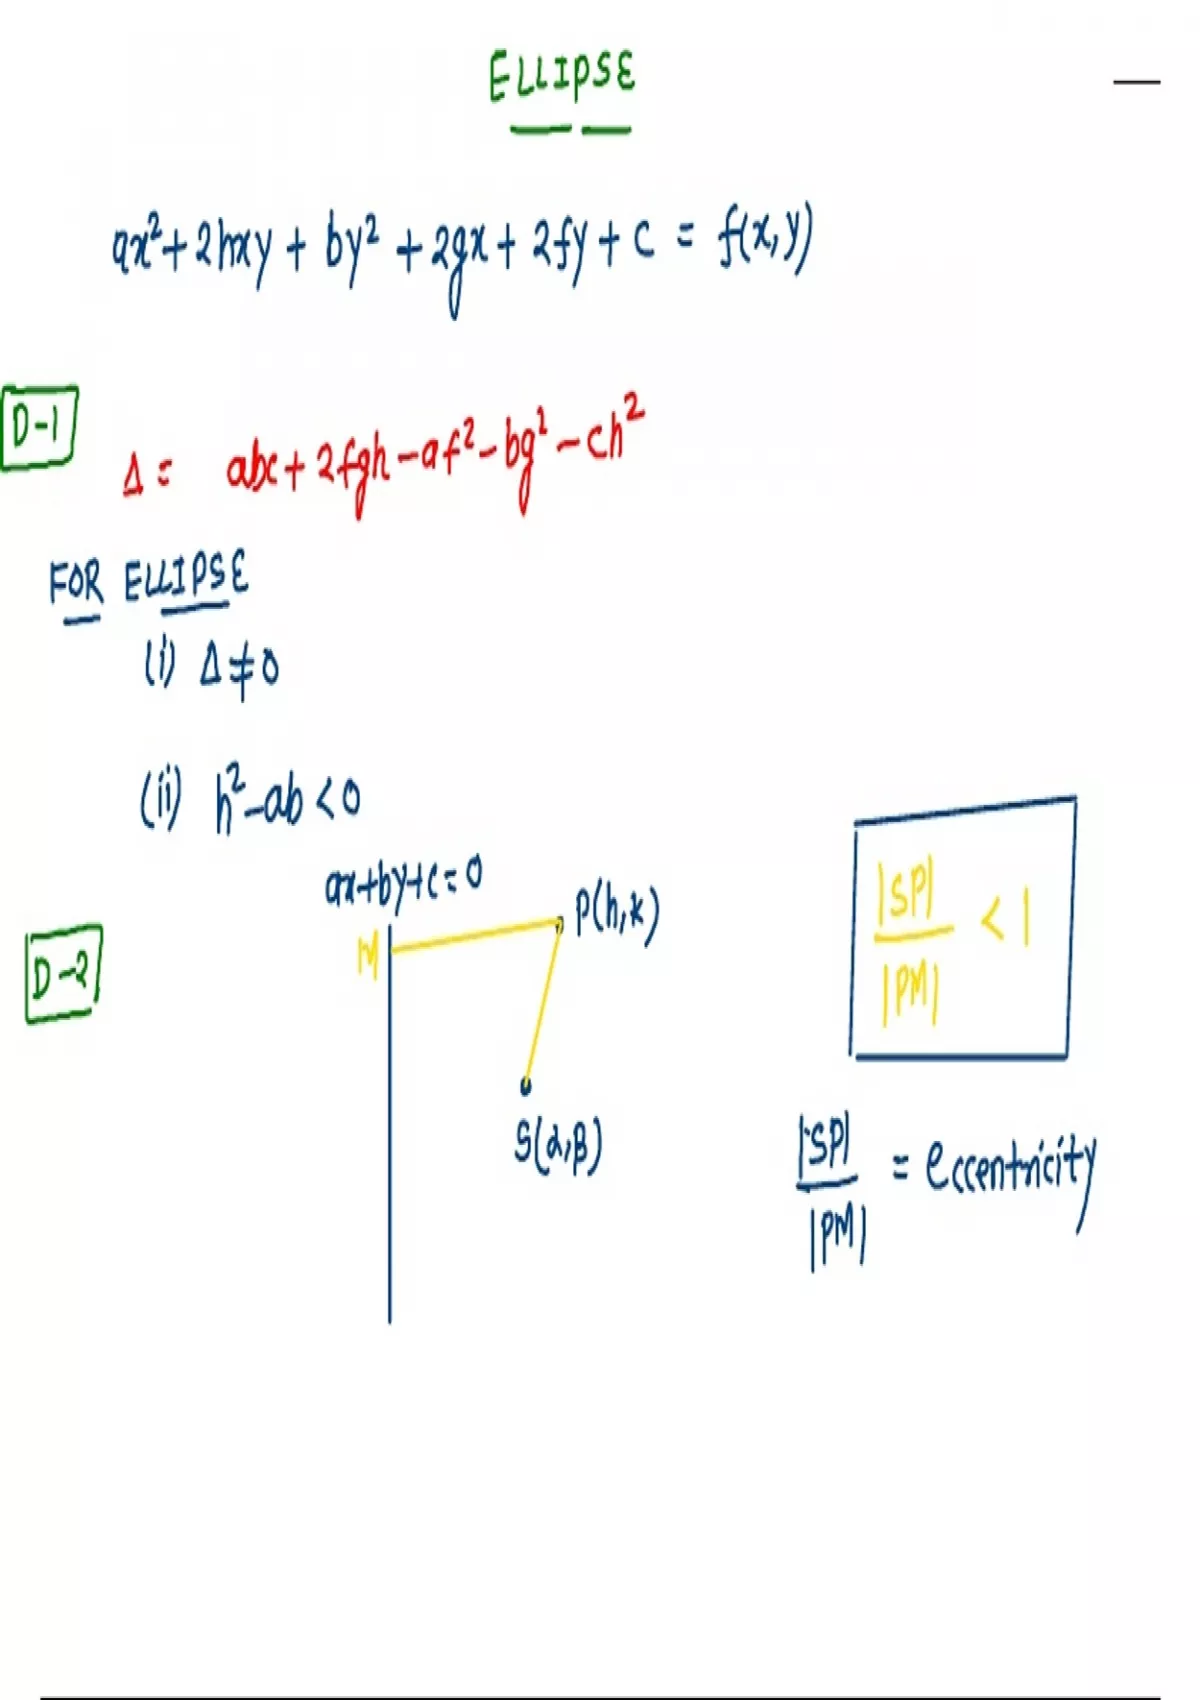 ELLIPSE
ax²+2hxy + by² + 2gx + 2fy + c = f(x,y)
D-1
Δ = abc + 2fgh - af² - bg² - ch²
FOR ELLIPSE
(i) Δ ≠ 0
(ii) h² - ab < 0
ax+by+c=0
D-2
M
P(h,k)
S(α,β)
|SP|
/|PM| < 1
|SP|
/|PM| = eccentricity